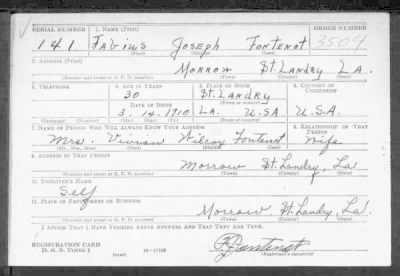 SERIAL NUMBER 1. NAME (Print) ORDER NUMBER
141 Fabius Joseph Fontenot 3504
(First) (Middle) (Last)
2. ADDRESS (Print)
Morrow St. Landry LA.
(Number and street or R. F. D. number) (Town) (County) (State)
3. TELEPHONE 4. AGE IN YEARS 5. PLACE OF BIRTH 6. COUNTRY OF CITIZENSHIP
30 St. Landry
(Town or county)
DATE OF BIRTH
3-14-1910 LA. U.S.A U.S.A.
(Exchange) (Number) (Mo.) (Day) (Yr.) (State or country)
7. NAME OF PERSON WHO WILL ALWAYS KNOW YOUR ADDRESS 8. RELATIONSHIP OF THAT PERSON
Mrs. Vivian Wilcox Fontenot Wife
(Mr., Mrs., Miss) (First) (Middle) (Last)
9. ADDRESS OF THAT PERSON
Morrow St. Landry, La
(Number and street or R. F. D. number) (Town) (County) (State)
10. EMPLOYER'S NAME
Self
11. PLACE OF EMPLOYMENT OR BUSINESS
Morrow St. Landry, La.
(Number and street or R. F. D. number) (Town) (County) (State)
I AFFIRM THAT I HAVE VERIFIED ABOVE ANSWERS AND THAT THEY ARE TRUE.
REGISTRATION CARD
D. S. S. Form 1 (over) Fontenot
(Registrant's signature)